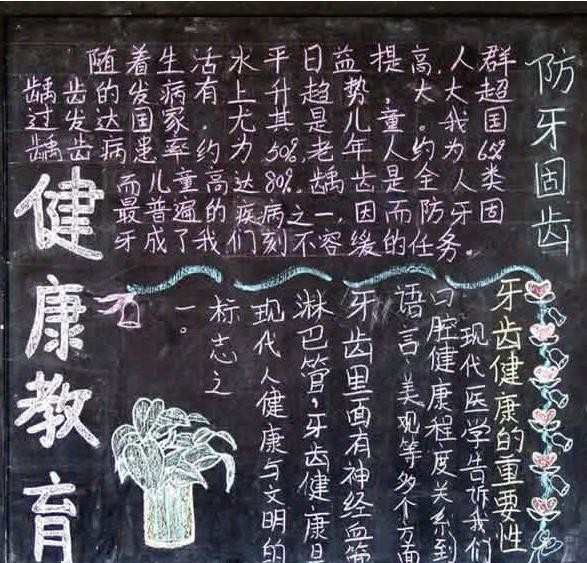 健康教育
防牙固齿
随着生活水平日益提高,人群
龋齿的发病有上升趋势,大大超
过发达国家.尤其是儿童。我国
龋齿病患率约为50%,老年人约为65%
而儿童高达80%.龋齿是全人类
最普遍的疾病之一,因而防牙固
牙成了我们刻不容缓的任务。
牙齿健康的重要性
现代医学告诉我们
口腔健康程度关系到
语言,美观等多个方面
牙齿里面有神经血管
淋巴管,牙齿健康是
现代人健康与文明的
标志之
一。